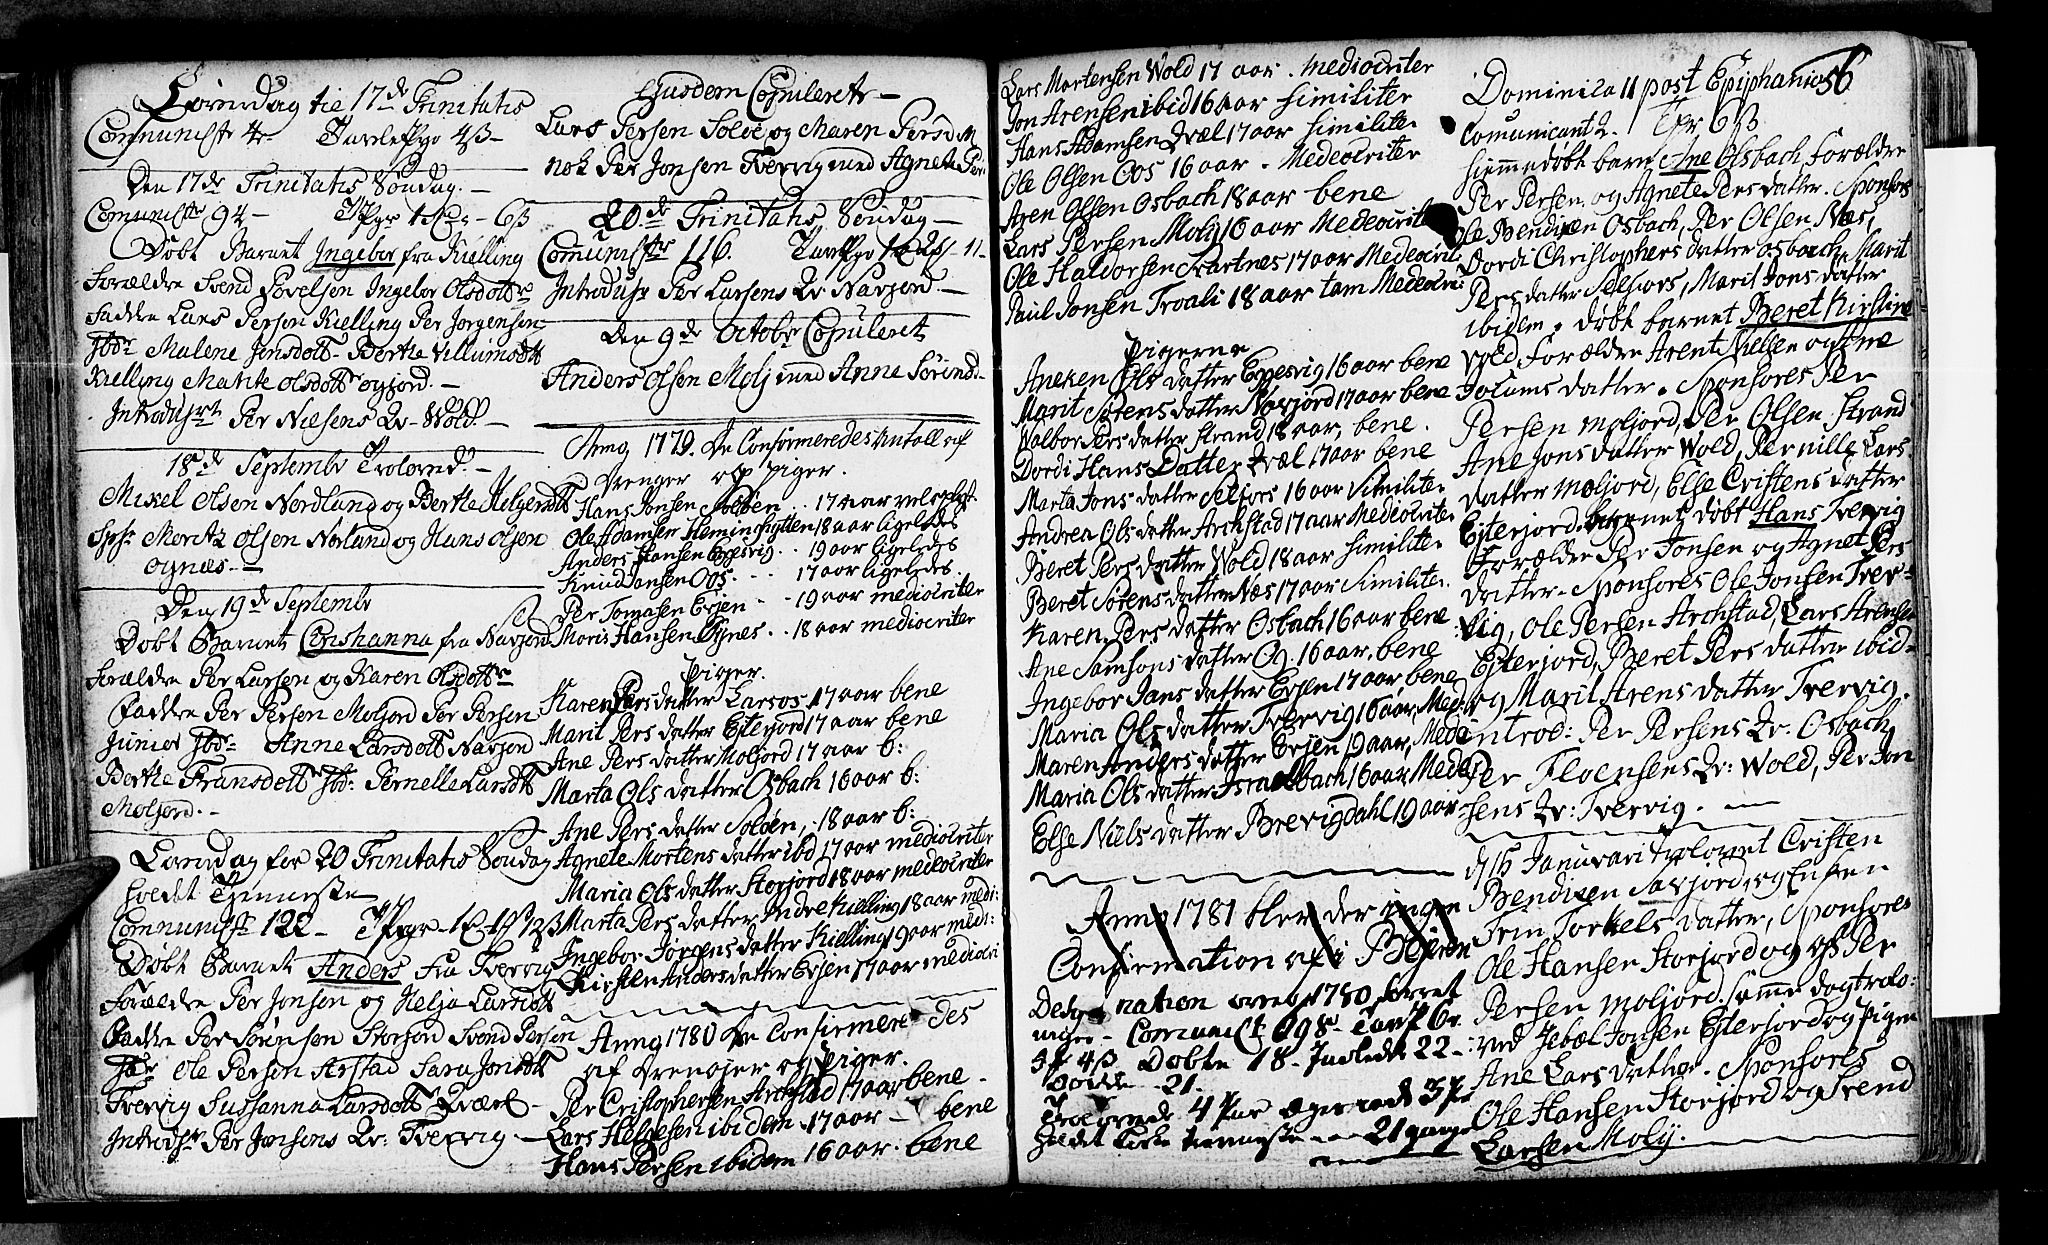 Løverdag til 17de Trinitatis
Communister 4re Tavlepge 4 β –
Den 17de Trinitatis Søndag. –
Comunister 94 – 6 β
Døbt Barnet Ingebor fra Kielling
Forældre Svend Povelsen Ingebor Olsdottr
Faddre Lars Person Kielling Per Jorgensen
Malene Jensdott. Berthe Villumsdtt
Kielling Marite Olsdottr ognjord. –
Introdusrt Per Nielsens Qv – Wold. –
18de September Trolovud. –
Mikel Olsen Nordland og Berthe Helgesdtt
Moritz Olsen Norland og Hans Olsen
ognæs. –
Den 19de Septembr
Døbt Barnet Conshanna fra Navjord
Forældre Per Larsen og Karen Olsdottr
Faddre Per Persen Moljord Per Persen
Junior Anne Larsdott Navjord
Berthe Fransdott Pernelle Larsdtt
Moljord. –
Løverdag for 20 Trinitatis Søndag
holdt Tienneste
Communister 122 –
Døbt Barnet Anders fra Tvervig
Forældre Per Jonsen og Helja Larsdott
Fadde Per Sørensen Storjord Svend Persen
Ole Person Arstad Sara Jonsdtt
Tvervig Sussanna Larsdott Qvæl –
Introdusr Per Jonsons Qv: Tvervig –
Ejusdem Copuleret –
Lars Persen Soløe og Maren Persd
nok Per Jonsen Tvervig med Agnete
20.de Trinitatis Søndag –
Comunister 116.
Introdusr Per Larsens Qv Navjord. –
Den 9de October Copuleret
Anders Olsen Molj med Anne Sørensd. –
Anno 1779. De Confirmeredes Antall af
Drenger og piger.
Hans Jonsen Soløen .. 17 aar vel oplyst.
Ole Adamsen Heminghytten 18 aar ligeledes
Anders Hansen Eggesvig .. 19 aar ligeledes
Knud Jansen Oos. .. 17 aar ligeledes.
Per Tomasen Evjen – 19 aar mediocriter
Moris Hansen Ognes .. 18 aar mediocriter
Piger.
Karen Pers datter Larsos. 17 aar bene
Marit Pers datter Esterjord 17 aar bene
Ane Pers datter Moljord 17 aar b:
Marta Ols datter Osbach 16 aar b:
Ane Pers datter Soløen, : 18 aar b:
Agnete Mortens datter ibd 17 aar mediocriter
Maria Ols datter Storjord 18 aar medeocriter
Marta Pers datter Indre Kielling 18 aar medi:
Ingebor Jørgens datter Kielling 19 aar medi:
Kirsten Anders datter Evjen 17 aar mediocri
Anno 1780 De Confirmeredes
af Drenger og Piger.
Per Cristophersen Archstad 17 aar bene –
Lars Helgesen ibidem. 17 aar – bene
Hans Persen ibidem 16 aar. bene
Lars Mortensen Wold 17 aar. Mediocriter
Jon Arensen ibid 16 aar similiter
Hans Adamsen Qvæl 17 aar similiter
Ole Olsen Oos 16 aar. Medeocriter
Aren Olsen Osbach 18 aar bene
Lars Persen Molij 16 aar Medeocriter
Ole Haldorsen Svartnes 17 aar Medeocrit
Paul Jonsen Troali 18 aar tam Medeocri:
Pigerne
Aneken Ols datter Eggesvig 16 aar bene
Marit Sørens datter Navjord 17 aar bene
Walbor Pers datter Strand 18 aar, bene.
Dordi Hans datter Qvæl 17 aar bene
Marta Jons datter Selfors 16 aar similiter
Andrea Ols datter Archstad 17 aar Medeocriter
Beret Pers datter Wold 18 aar similiter
Beret Sørens datter Næs 17 aar Similiter.
Karen Pers datter Osbach 16 aar bene
Ane Samsons datter Og. 16 aar. bene
Ingebor Jans datter Evjen 17 aar, bene
Maria Ols datter Tvervig 16 aar, Med:
Maren Anders datter Evjen 19 aar, Mede
Maria Ols datter Israelsbach 16 aar Mede
Else Niels datter Brevigdahl 19 aar
Anno 1781 blev der ingen
Confirmation af i Bejeren
nation over 1780
Comunict 698
4 β Døbte 18. Inledde 22 –
Døde 21.
Trolovede 4 Par
holdt Kirke tienneste 21 gange
56
Dominica 11 post Epiphanias
Comunicant 2. 6 β
hiemmedøbt barn Ane Osbach, forældre
Per Persen, og Agnete Pers datter. Sponsors
Ole Bendixen Osbach, Per Olsen Næs,
Dordi Christophers datter Osbach, Marit
Pers datter Selfors, Marit Jons datter
ibidem. døbt barnet Beret Kirstine
Wold, forældre Arent Nielsen og Ane
Joramsdatter. Sponsores Per
Persen Moljord, Per Olsen Strand
Ane Jons datter Wold, Pernille Lars
datter Moljord, Else Cristens datter
Esterjord. barnet døbt Hans Tvervig
forældre Per Jonsen og Agnet Pers
datter. Sponsores Ole Jonsen Tver-
vig, Ole Persen Archstad, Lars Arensen
Esterjord, Beret Pers datter ibid
og Marit Arens datter Tvervig.
introd: Per Persens Qv: Osbach,
Per Floensens Qv: Wold, Per Jon
sens Qv: Tvervig. –
d 15 Januvari Trolovet Cristen
Bendixen Savjord, og Enken
Trin Torkels datter, Sponsores
Ole Hansen Storjord og Per
Persen Moljord. samme dag trolo:
ved Jebæl Jonsen Esterjord og Pigen
Ane Lars datter. Sponsores
Ole Hansen Storjord og Svend
Larsen Molij.